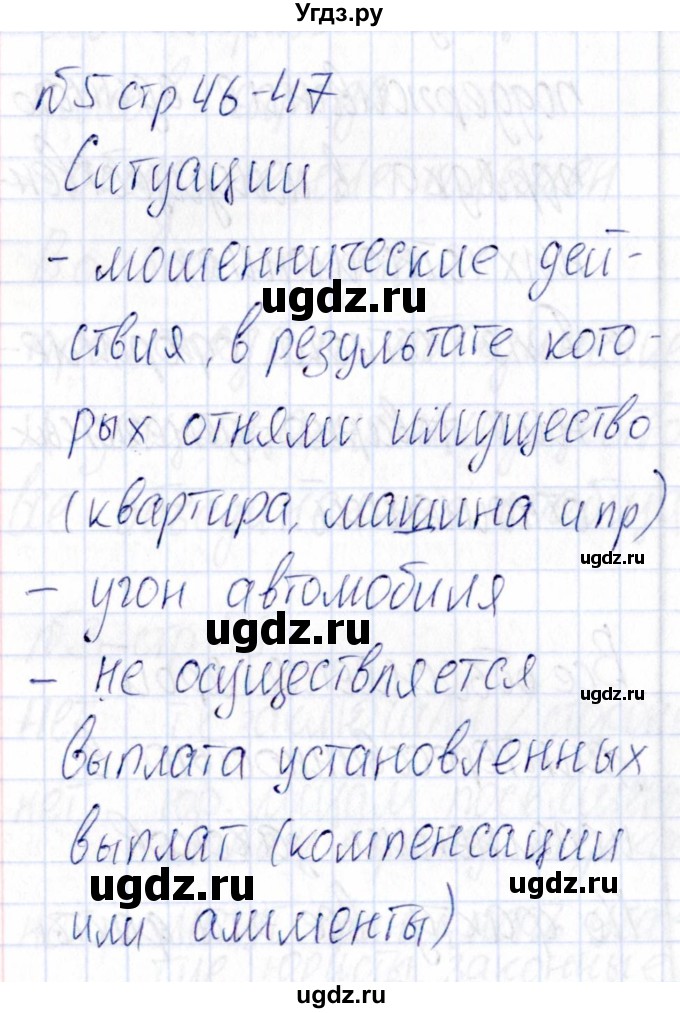 Угдз.ру
№5 стр 46-47
Ситуации
- мошеннические дей-
ugdz.ru
ствия, в результате кото-
рых отняли имущество
(квартира, машина и пр)
ugdz.ru
- угон автомобиля
ugdz.ru
- не осуществляется
ugdz.ru
выплата установленных
выплат (компенсации
ugdz.ru
ugdz.ru
или алименты)
ugdz.ru